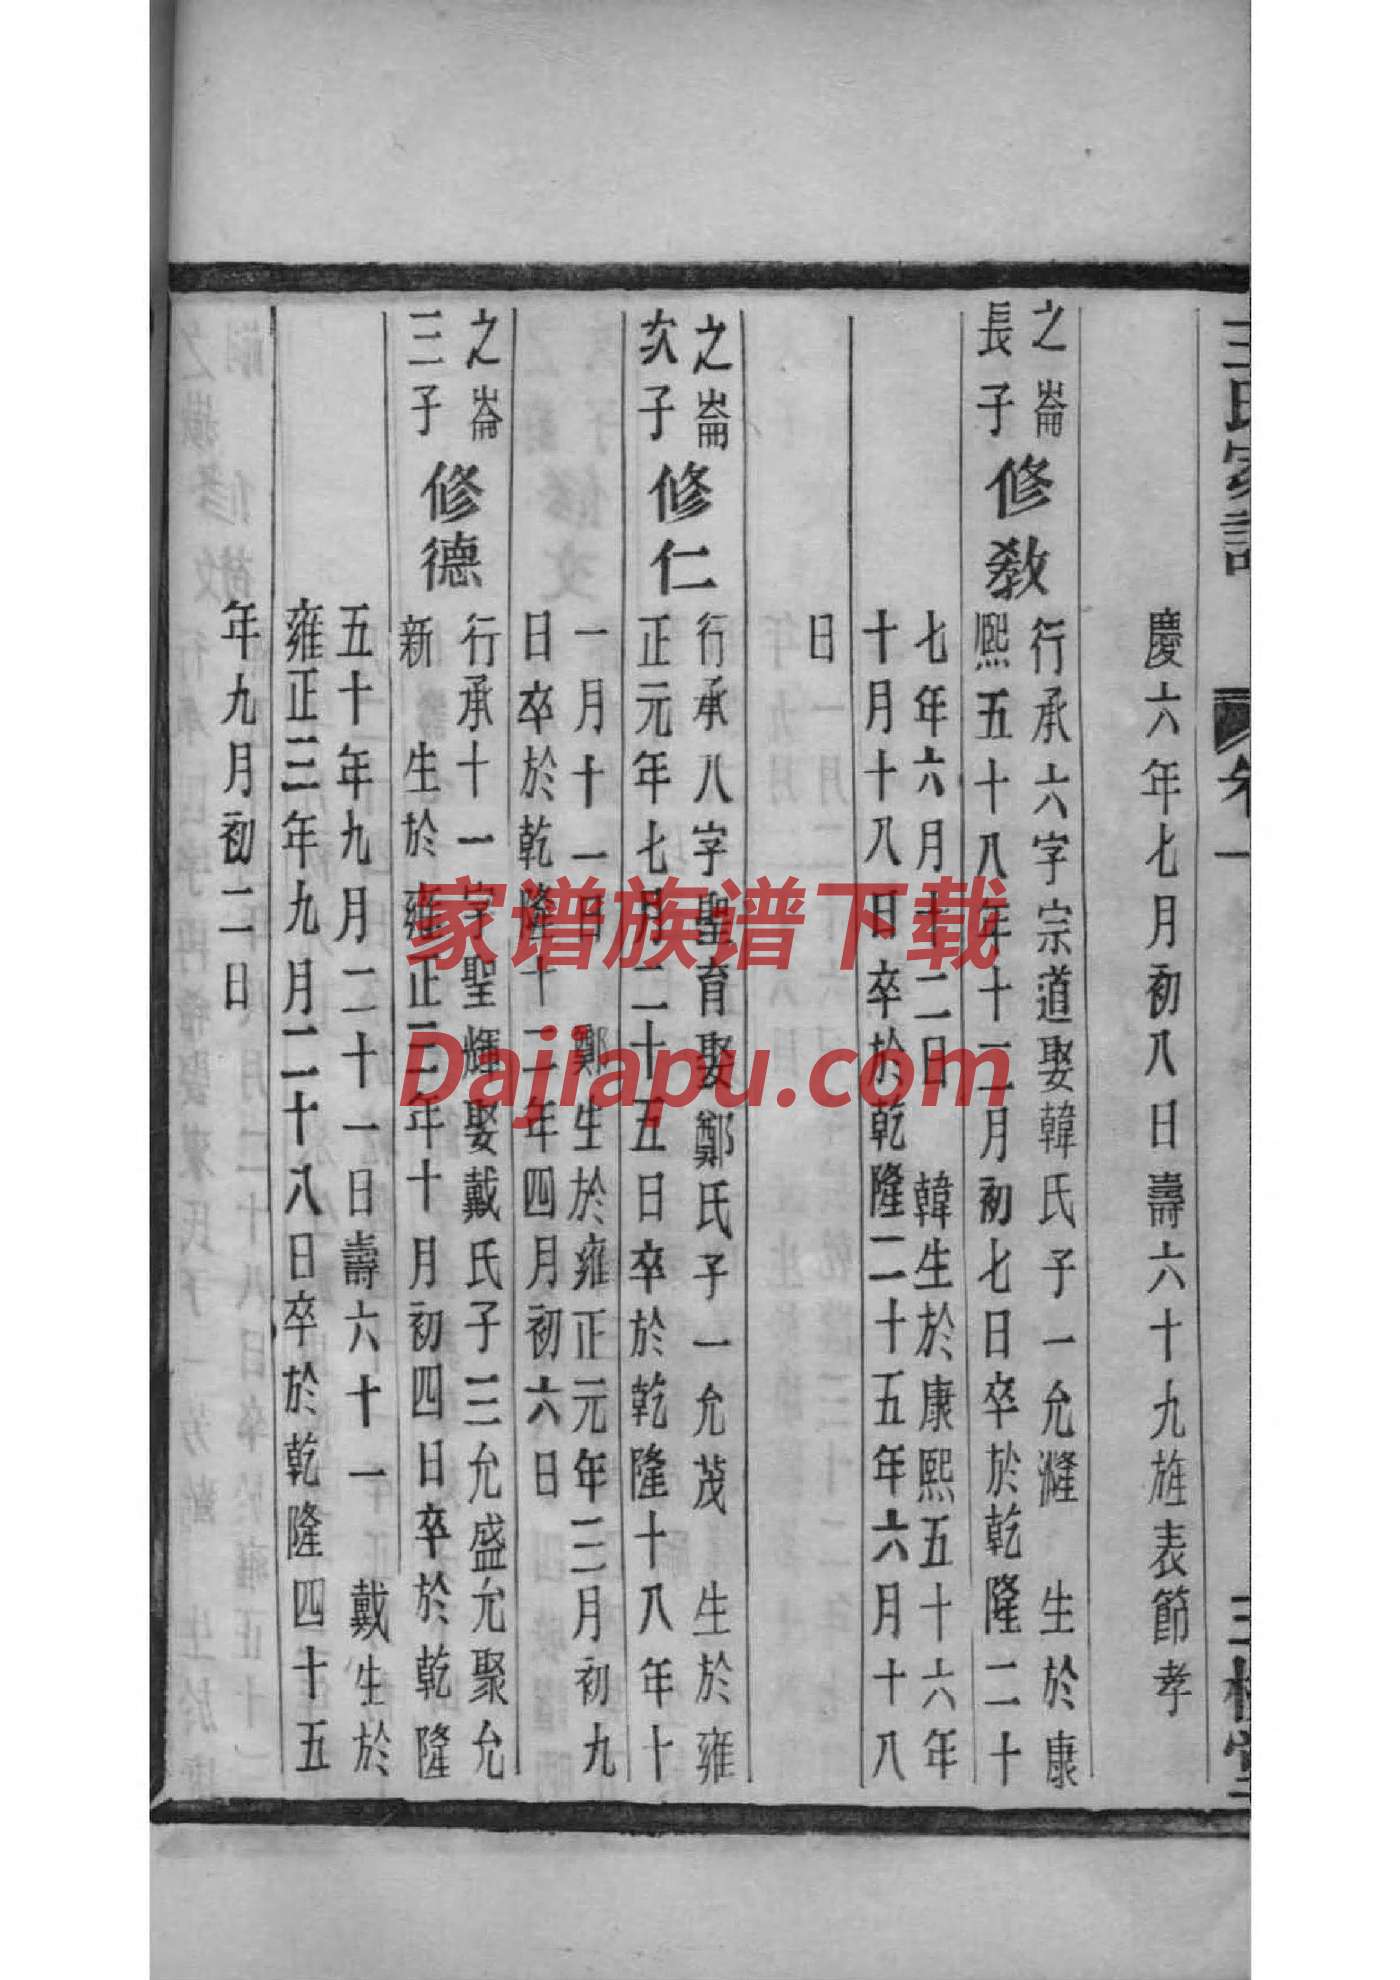 王氏家譜
卷一
三槐堂
慶六年七月初八日壽六十九旌表節孝
之崙
長子
修教
行承六字宗道娶韓氏子一允漋 生於康
熙五十八年十二月初七日卒於乾隆二十
七年六月十二日 韓生於康熙五十六年
十月十八日卒於乾隆二十五年六月十八
日
之崙
次子
修仁
行承八字聖育娶鄭氏子一允茂 生於雍
正元年七月二十五日卒於乾隆十八年十
一月十一日 鄭生於雍正元年三月初九
日卒於乾隆十二年四月初六日
之崙
三子
修德
行承十一字聖輝娶戴氏子三允盛允聚允
新 生於雍正二年十月初四日卒於乾隆
五十年九月二十一日壽六十一 戴生於
雍正三年九月二十八日卒於乾隆四十五
年九月初二日
家谱族谱下载
Dajiapu.com